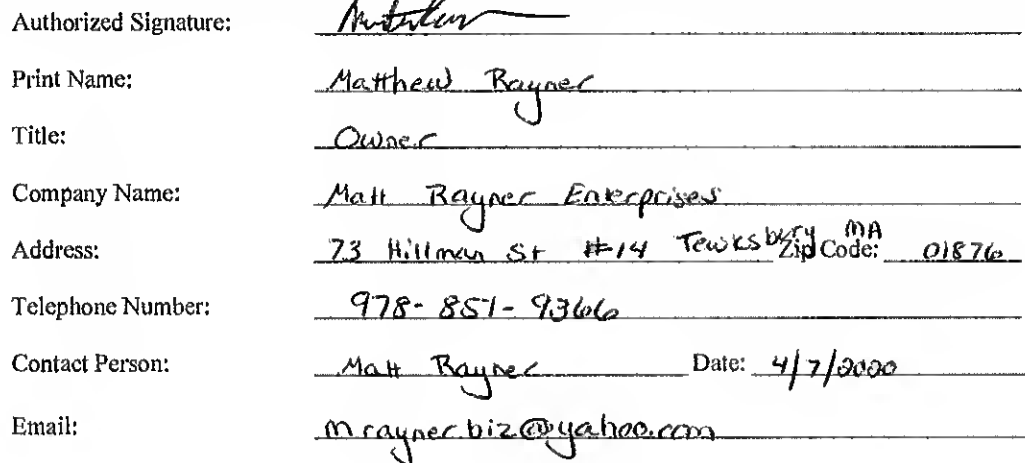 Authorized Signature:
Print Name: Matthew Rayner
Title: Owner
Company Name: Matt Rayner Enterprises
Address: 73 Hillman St #14 Tewksbury MA Zip Code: 01876
Telephone Number: 978-851-9366
Contact Person: Matt Rayner Date: 4/7/2020
Email: mrayner.biz@yahoo.com